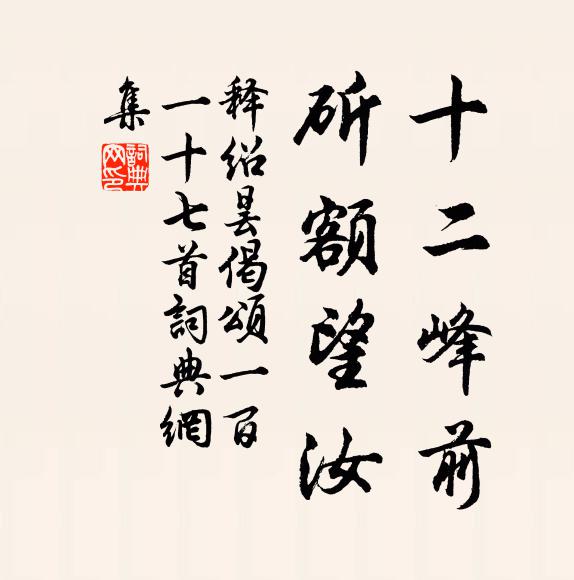 十二峰前
斫額望汝
释绍昙偈頌一百
一十七首詞典網
集
詞典网印